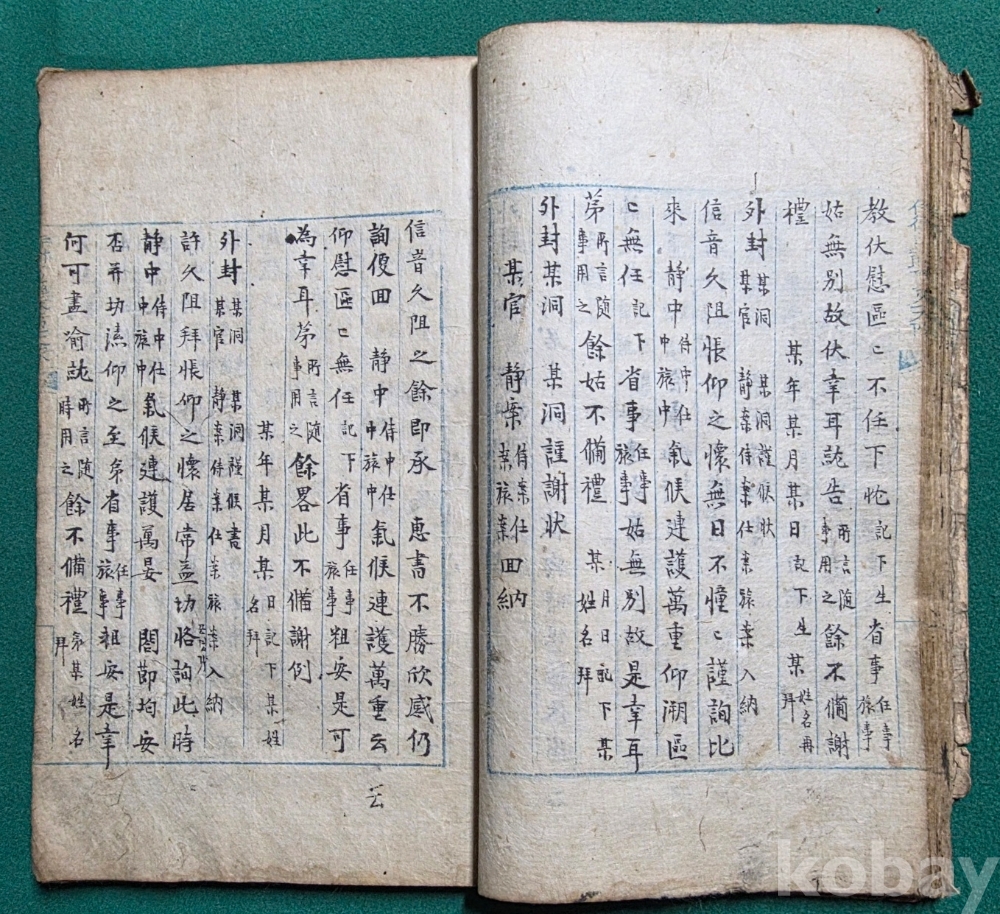 教伏慰區〻不任下忱記下生省事任事旅事
姑無別故伏幸耳詵告所言隨事用之餘不備謝
禮 某年某月某日記下生某姓名再拜
外封某洞某官 某洞謹候狀靜案侍案仕案旅案入納
信音久阻悵仰之懷無日不憧〻謹詢比
來 靜中侍中仕中旅中氣候連護萬重仰溯區
〻無任記下省事任事旅事姑無別故是幸耳
第所言隨事用之餘姑不備禮 某月日記下某姓名拜
外封某洞 某洞謹謝狀
某官 靜案侍案仕案旅案回納
信音久阻之餘即承 惠書不勝欣感仍
詢便回 靜中侍中仕中旅中氣候連護萬重云云
仰慰區〻無任記下省事任事旅事粗安是可
為幸耳第所言隨事用之餘畧此不備謝例
某年某月某日記下某姓名拜
外封某洞某官 某洞謹候書靜案侍案仕案旅案入納
許久阻拜悵仰之懷居常益切恪詢此時
靜中侍中仕中旅中氣候連護萬晏 閤節均安
否并切溸仰之至弟省事任事旅事粗安是幸
何可盡喻詵所言隨時用之餘不備禮弟某姓名拜
kobay